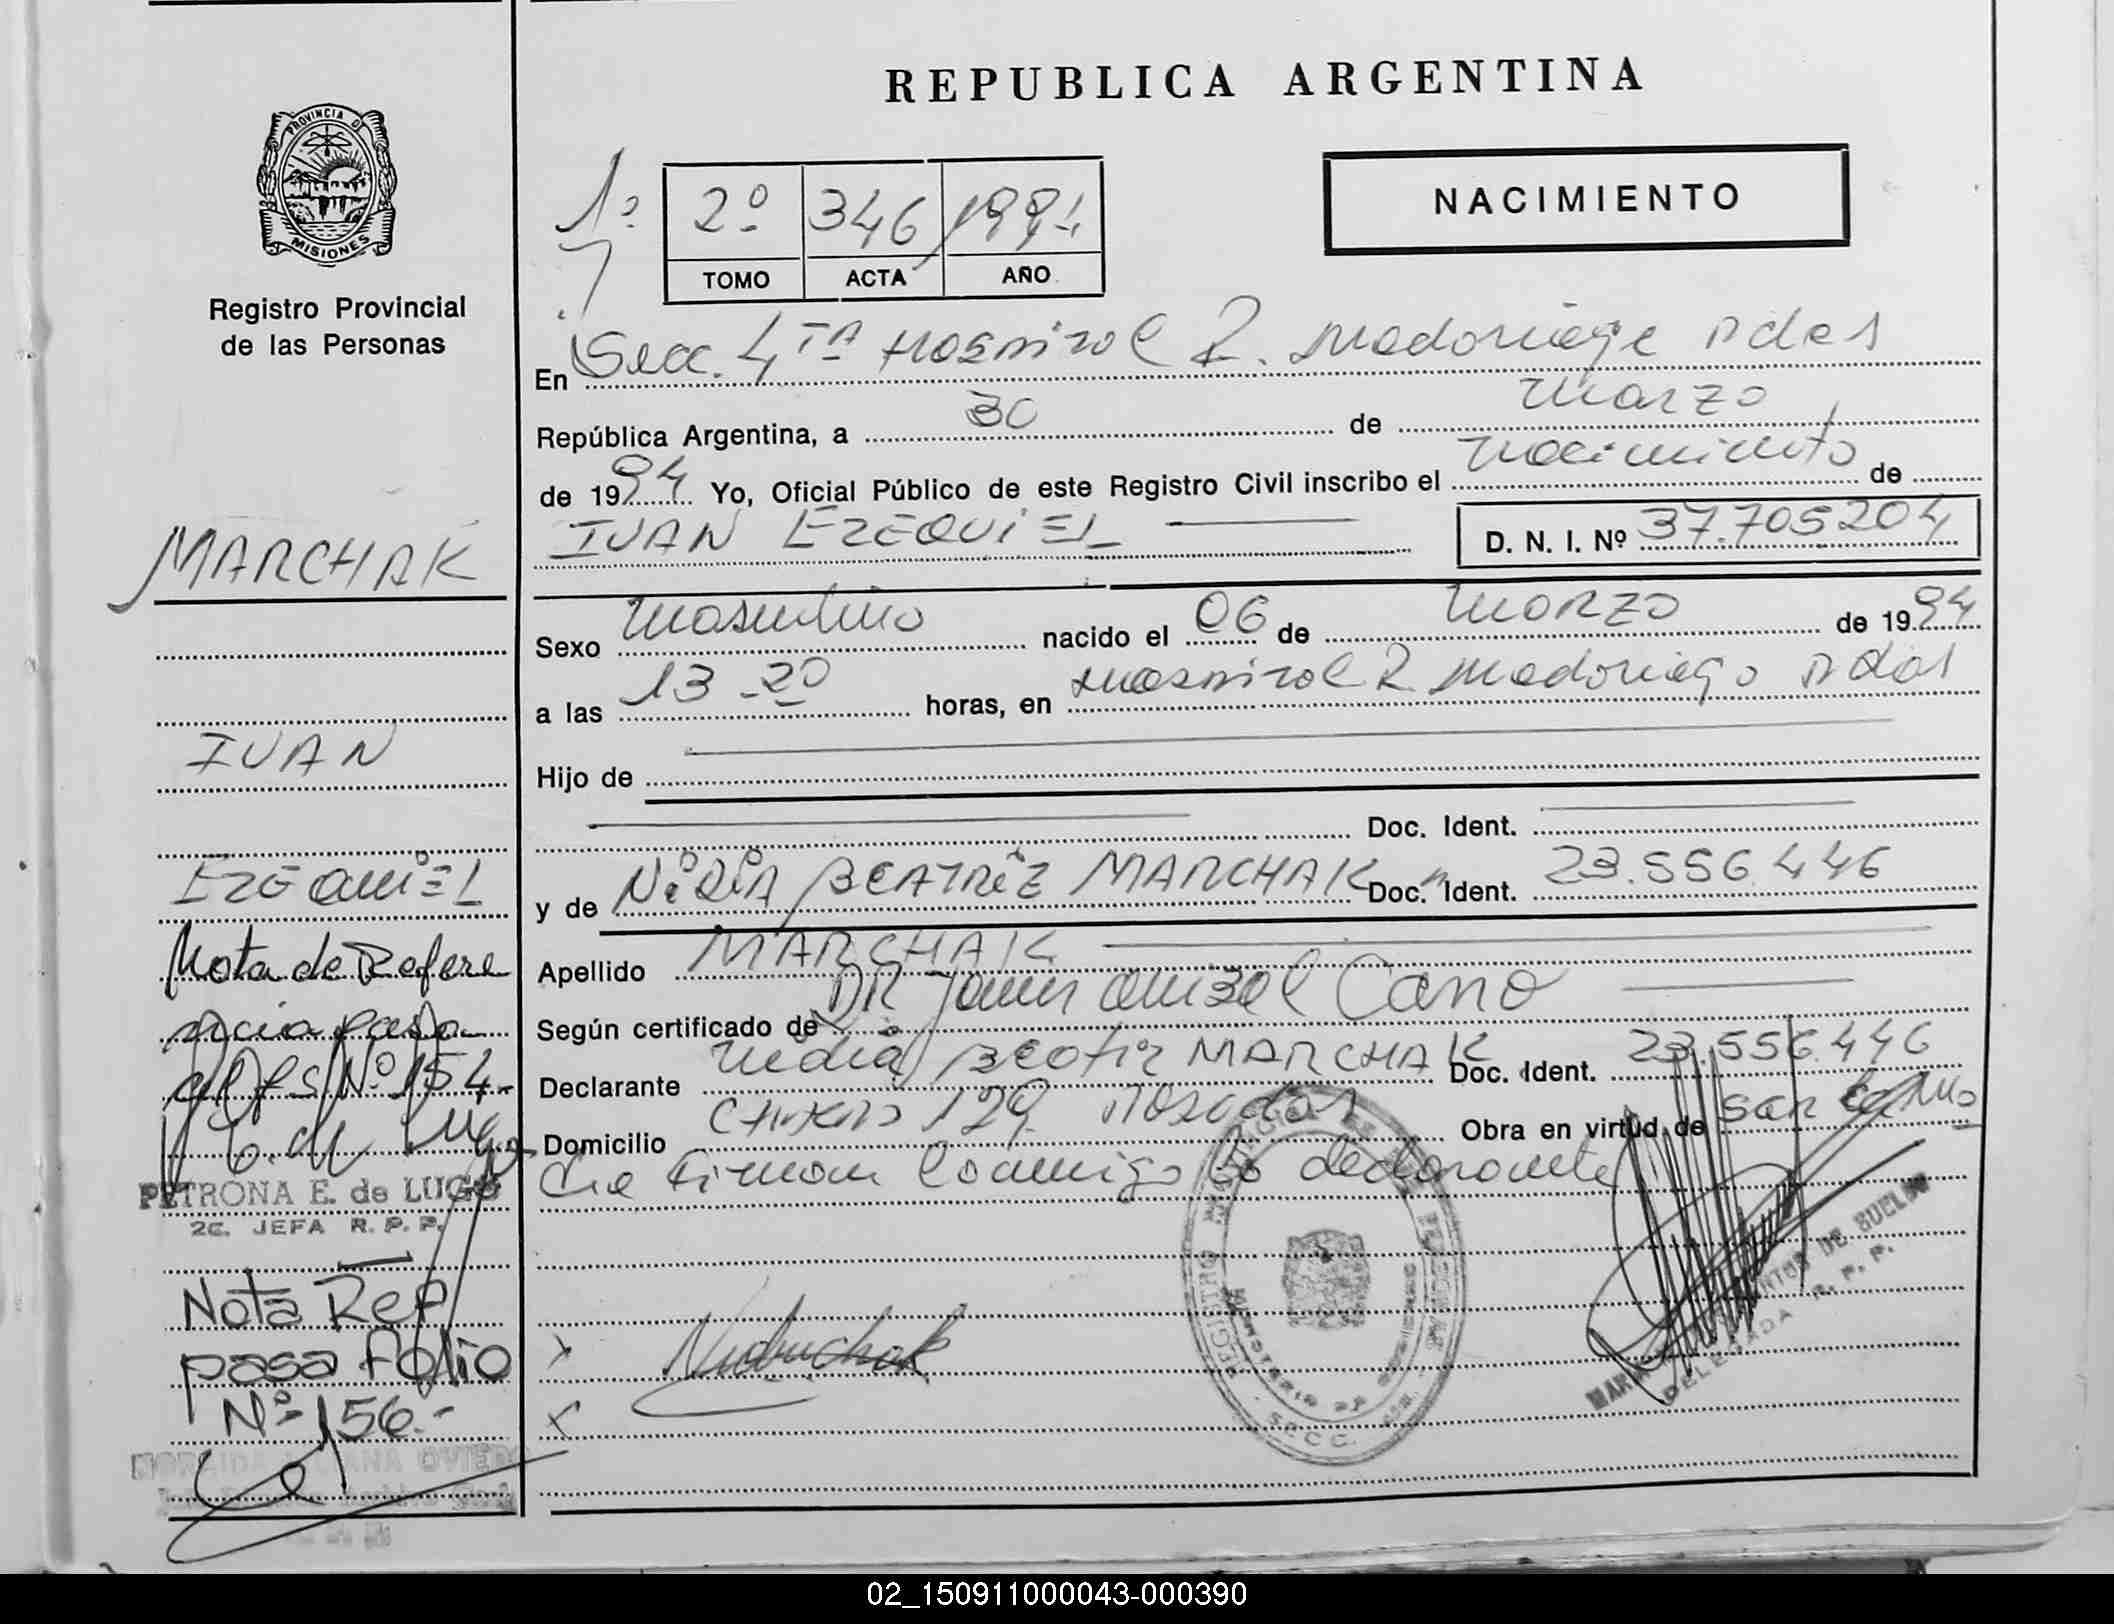 REPUBLICA ARGENTINA
PROVINCIA DE
MISIONES
Registro Provincial
de las Personas
NACIMIENTO
1º
2º 346 1994
TOMO ACTA AÑO
En Secc. 4TA Hospital R. Madariaga Pdas
República Argentina, a 30 de Marzo
de 1994 Yo, Oficial Público de este Registro Civil inscribo el nacimiento de
IVAN EZEQUIEL D. N. I. Nº 37.705204
Sexo Masculino nacido el 06 de Marzo de 1994
a las 13-20 horas, en Hospital R Madariaga Pdas
Hijo de
Doc. Ident.
y de NiDiA BEATRiZ MARCHAK Doc. Ident. 23.556.446
Apellido MARCHAK
Según certificado de DR Anibal Cano
Declarante Nidia Beatriz MARCHAK Doc. Ident. 23.556.446
Domicilio 129 Posadas Obra en virtud de ser
firman conmigo la declarante
MARCHAK
IVAN
EZEQUIEL
Nota de Refere
ncia pasa
al fs Nº 154.-
PETRONA E. de LUGO
2C. JEFA R. P. P.
Nota Ref
pasa folio
Nº 156.-
OVIEDO
DELEGADA R. P. P.
02_150911000043-000390